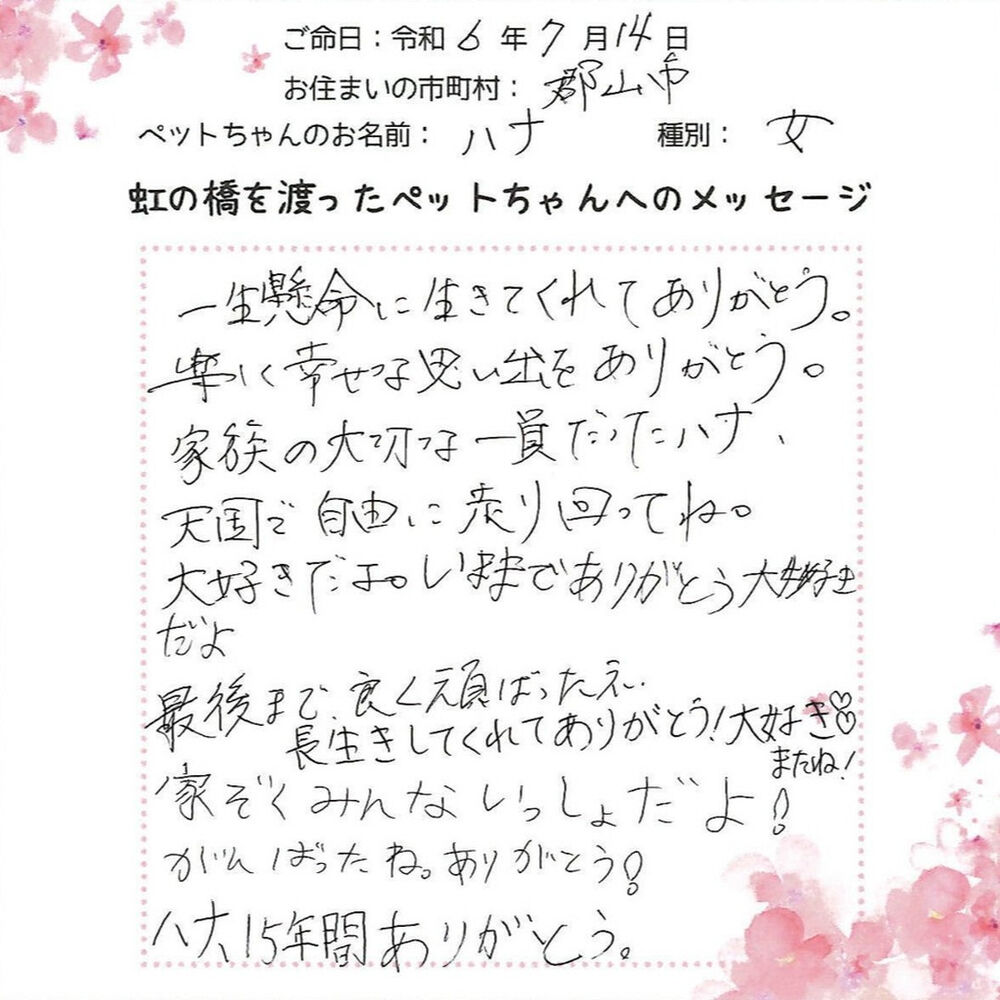 ご命日：令和 6 年 7 月 14 日
お住まいの市町村： 郡山市
ペットちゃんのお名前： ハナ 種別： 女
虹の橋を渡ったペットちゃんへのメッセージ
一生懸命に生きてくれてありがとう。
楽しく幸せな思い出をありがとう。
家族の大切な一員だったハナ、
天国で自由に走り回ってね。
大好きだよ。いままでありがとう大好き
だよ
最後まで、良く頑ばったネ、
長生きしてくれてありがとう!大好き♡♡
またね!
家ぞくみんないっしょだよ!
がんばったね。ありがとう!
ハナ、15年間ありがとう。